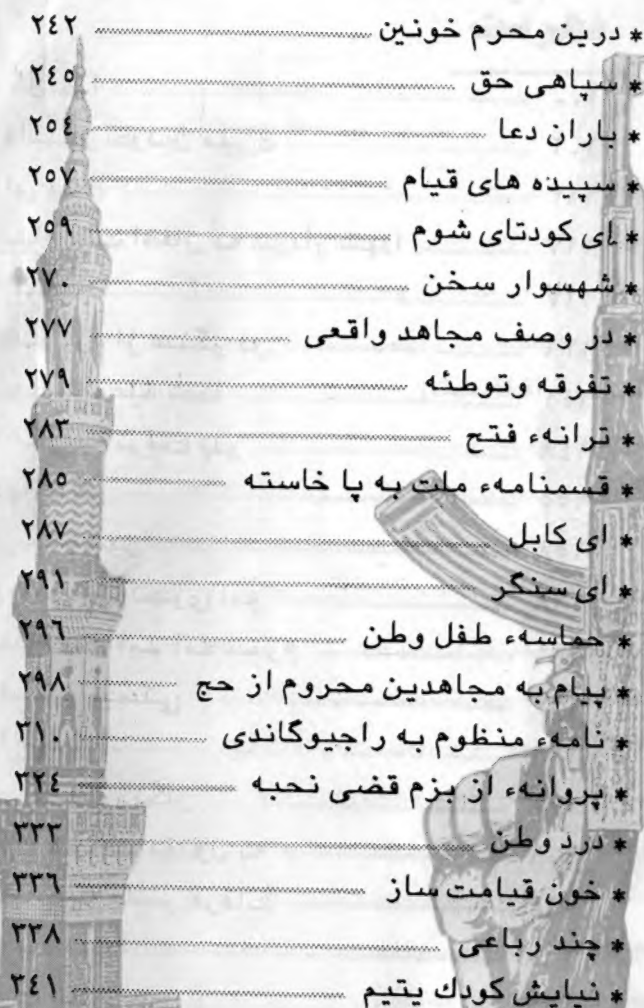 * درین محرم خونین ........ ٢٤٢
* سپاهی حق ........ ٢٤٥
* باران دعا ........ ٢٥٤
* سپیده های قیام ........ ٢٥٧
* ای کودتای شوم ........ ٢٥٩
* شهسوار سخن ........ ٢٧٠
* در وصف مجاهد واقعی ........ ٢٧٧
* تفرقه وتوطئه ........ ٢٧٩
* ترانهء فتح ........ ٢٨٣
* قسمنامهء ملت به پا خاسته ........ ٢٨٥
* ای کابل ........ ٢٨٧
* ای سنگر ........ ٢٩١
* حماسهء طفل وطن ........ ٢٩٦
* پیام به مجاهدین محروم از حج ........ ٢٩٨
* نامهء منظوم به راجیوگاندی ........ ٣١٠
* پروانهء از بزم قضی نحبه ........ ٣٢٤
* درد وطن ........ ٣٣٣
* خون قیامت ساز ........ ٣٣٦
* چند رباعی ........ ٣٣٨
* نیایش کودك یتیم ........ ٣٤١